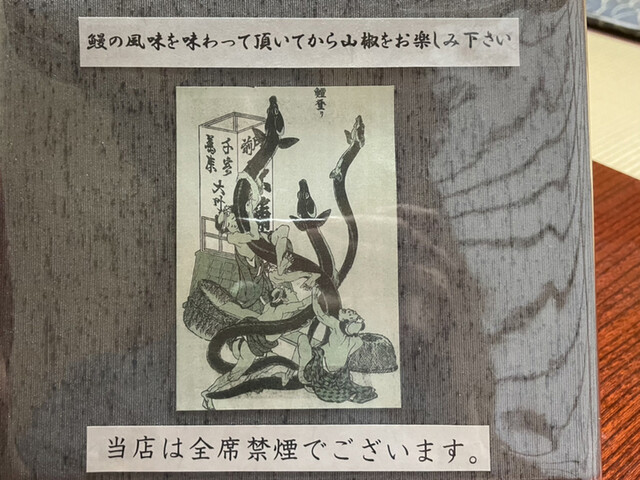 鰻の風味を味わって頂いてから山椒をお楽しみ下さい
鰻登り
大叶
当店は全席禁煙でございます。